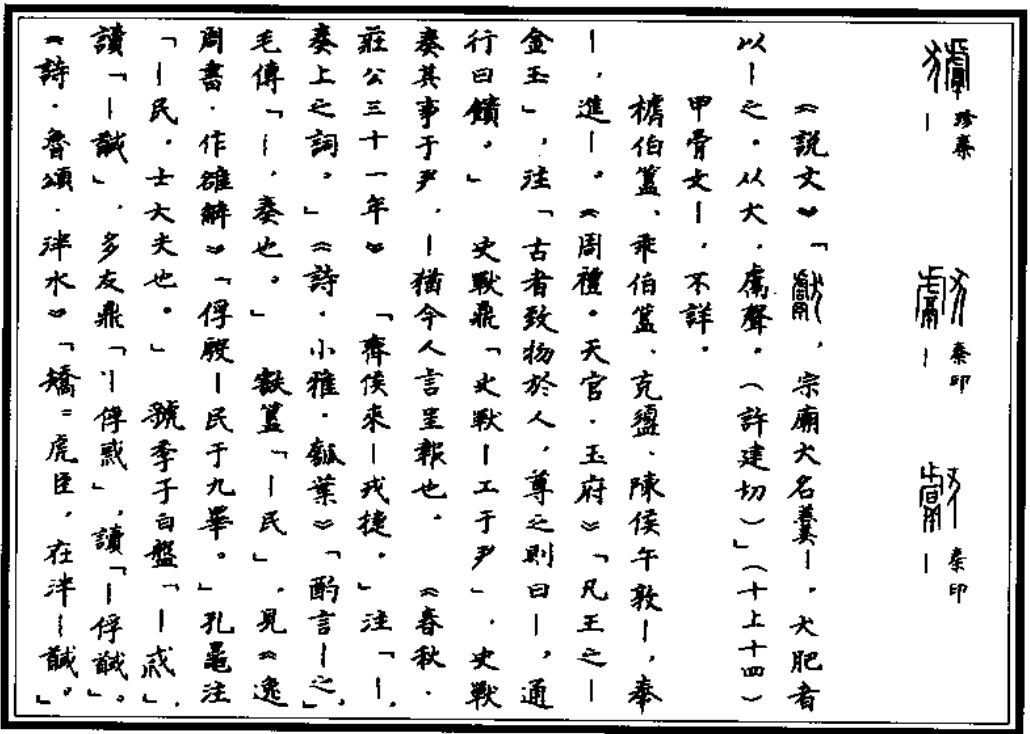 丨珍秦
丨秦印
丨秦印
《說文》「獻，宗廟犬名羹丨，犬肥者
以丨之。从犬，鬳聲。（許建切）」（十上十四）
甲骨文丨，不詳。
櫓伯簋、乖伯簋、克盨、陳侯午敦丨，奉
丨，進丨。《周禮·天官·玉府》「凡王之丨
金玉」，注「古者致物於人，尊之則曰丨，通
行曰饋。」 史獸鼎「史獸丨工于尹」，史獸
奏其事于尹，丨猶今人言呈報也。 《春秋·
莊公三十一年》「齊侯來丨戎捷。」注「丨，
奏上之詞。」《詩·小雅·瓠葉》「酌言丨之」，
毛傳「丨，奏也。」 㝬簋「丨民」，見《逸
周書·作雒解》「俘殷丨民于九畢。」孔鼂注
「丨民，士大夫也。」 虢季子白盤「丨戓」，
讀「丨馘」，多友鼎「丨俘戓」，讀「丨俘馘」。
《詩·魯頌·泮水》「矯=虎臣，在泮丨馘。」